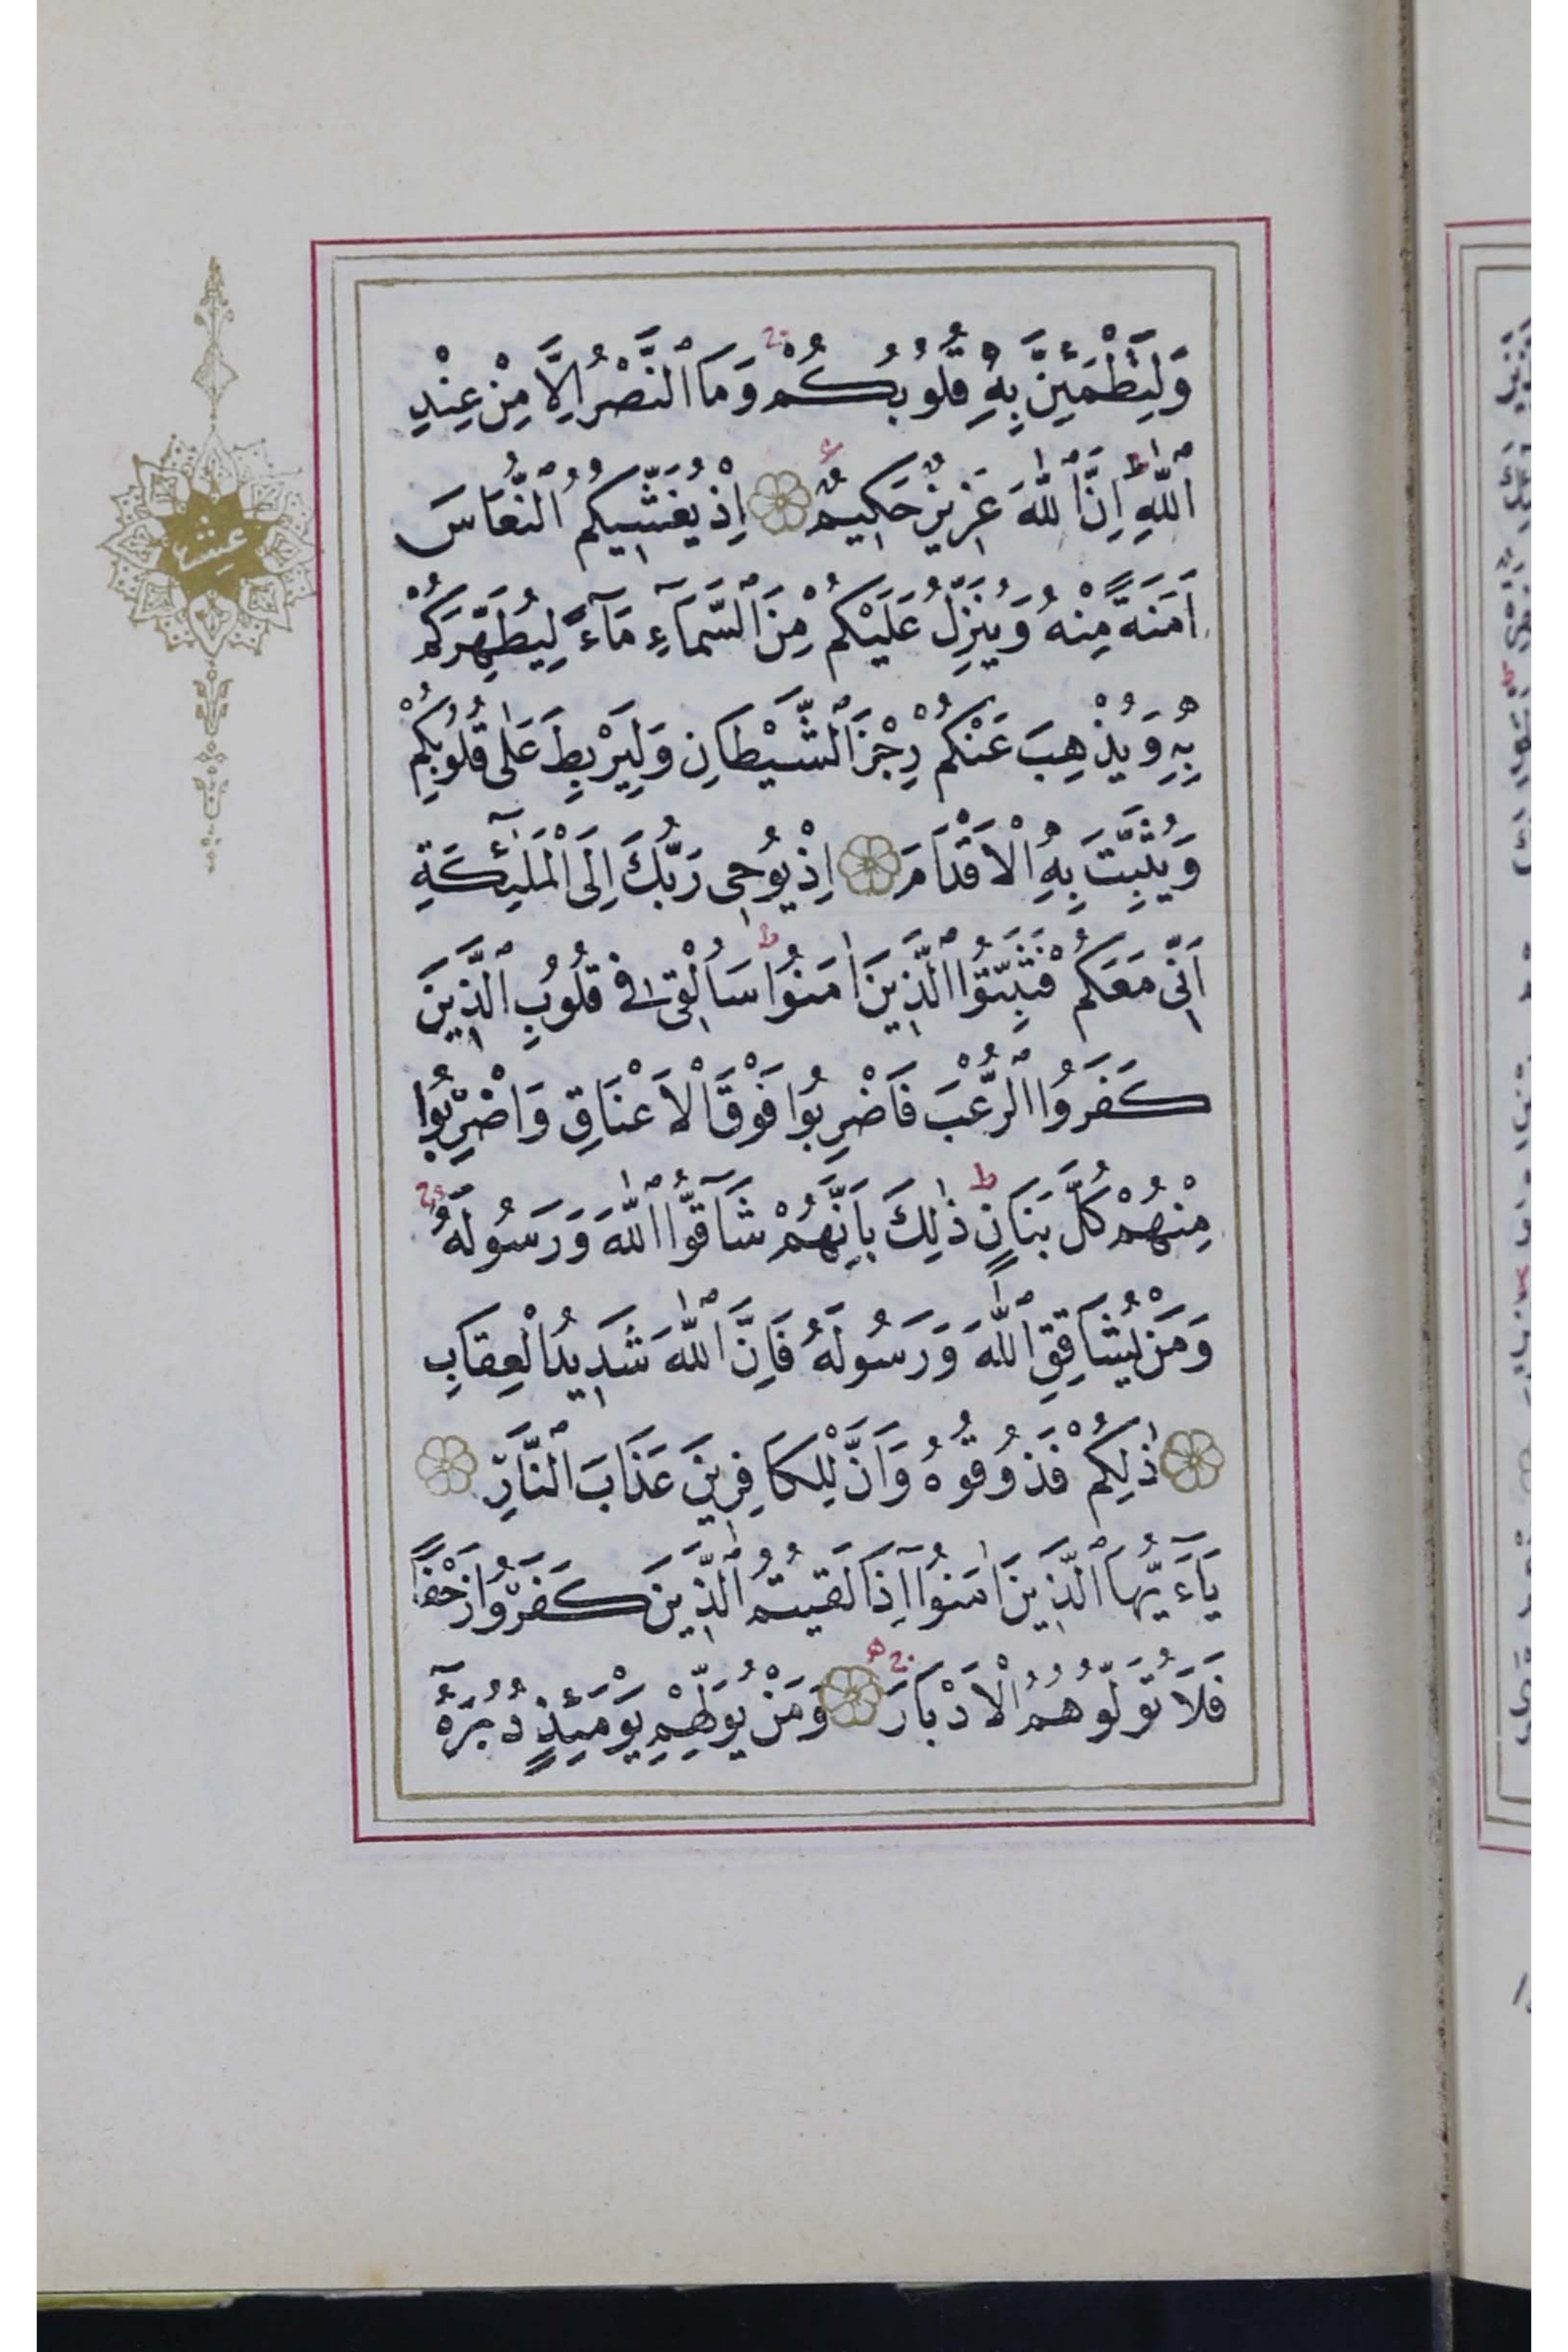 وَلِتَطْمَئِنَّ بِهِ قُلُوبُكُمْ وَمَا ٱلنَّصْرُ اِلَّا مِنْ عِنْدِ
ٱللّٰهِ اِنَّ ٱللّٰهَ عَزِيزٌ حَكِيمٌ اِذْ يُغَشِّيكُمُ ٱلنُّعَاسَ
عشر
اَمَنَةً مِنْهُ وَيُنَزِّلُ عَلَيْكُمْ مِنَ ٱلسَّمَآءِ مَآءً لِيُطَهِّرَكُمْ
بِهِ وَيُذْهِبَ عَنْكُمْ رِجْزَ ٱلشَّيْطَانِ وَلِيَرْبِطَ عَلٰى قُلُوبِكُمْ
وَيُثَبِّتَ بِهِ الْاَقْدَامَ اِذْ يُوحِى رَبُّكَ اِلَى الْمَلٰٓئِكَةِ
اَنِّى مَعَكُمْ فَثَبِّتُوا ٱلَّذِينَ اٰمَنُوا سَاُلْقِى فِى قُلُوبِ ٱلَّذِينَ
كَفَرُوا ٱلرُّعْبَ فَاضْرِبُوا فَوْقَ الْاَعْنَاقِ وَاضْرِبُوا
مِنْهُمْ كُلَّ بَنَانٍ ذٰلِكَ بِاَنَّهُمْ شَآقُّوا ٱللّٰهَ وَرَسُولَهُ
وَمَنْ يُشَاقِقِ ٱللّٰهَ وَرَسُولَهُ فَاِنَّ ٱللّٰهَ شَدِيدُ الْعِقَابِ
ذٰلِكُمْ فَذُوقُوهُ وَاَنَّ لِلْكَافِرِينَ عَذَابَ ٱلنَّارِ
يَآءَيُّهَا ٱلَّذِينَ اٰمَنُوٓا اِذَا لَقِيتُمُ ٱلَّذِينَ كَفَرُوا زَحْفًا
فَلَا تُوَلُّوهُمُ الْاَدْبَارَ وَمَنْ يُوَلِّهِمْ يَوْمَئِذٍ دُبُرَهُٓ